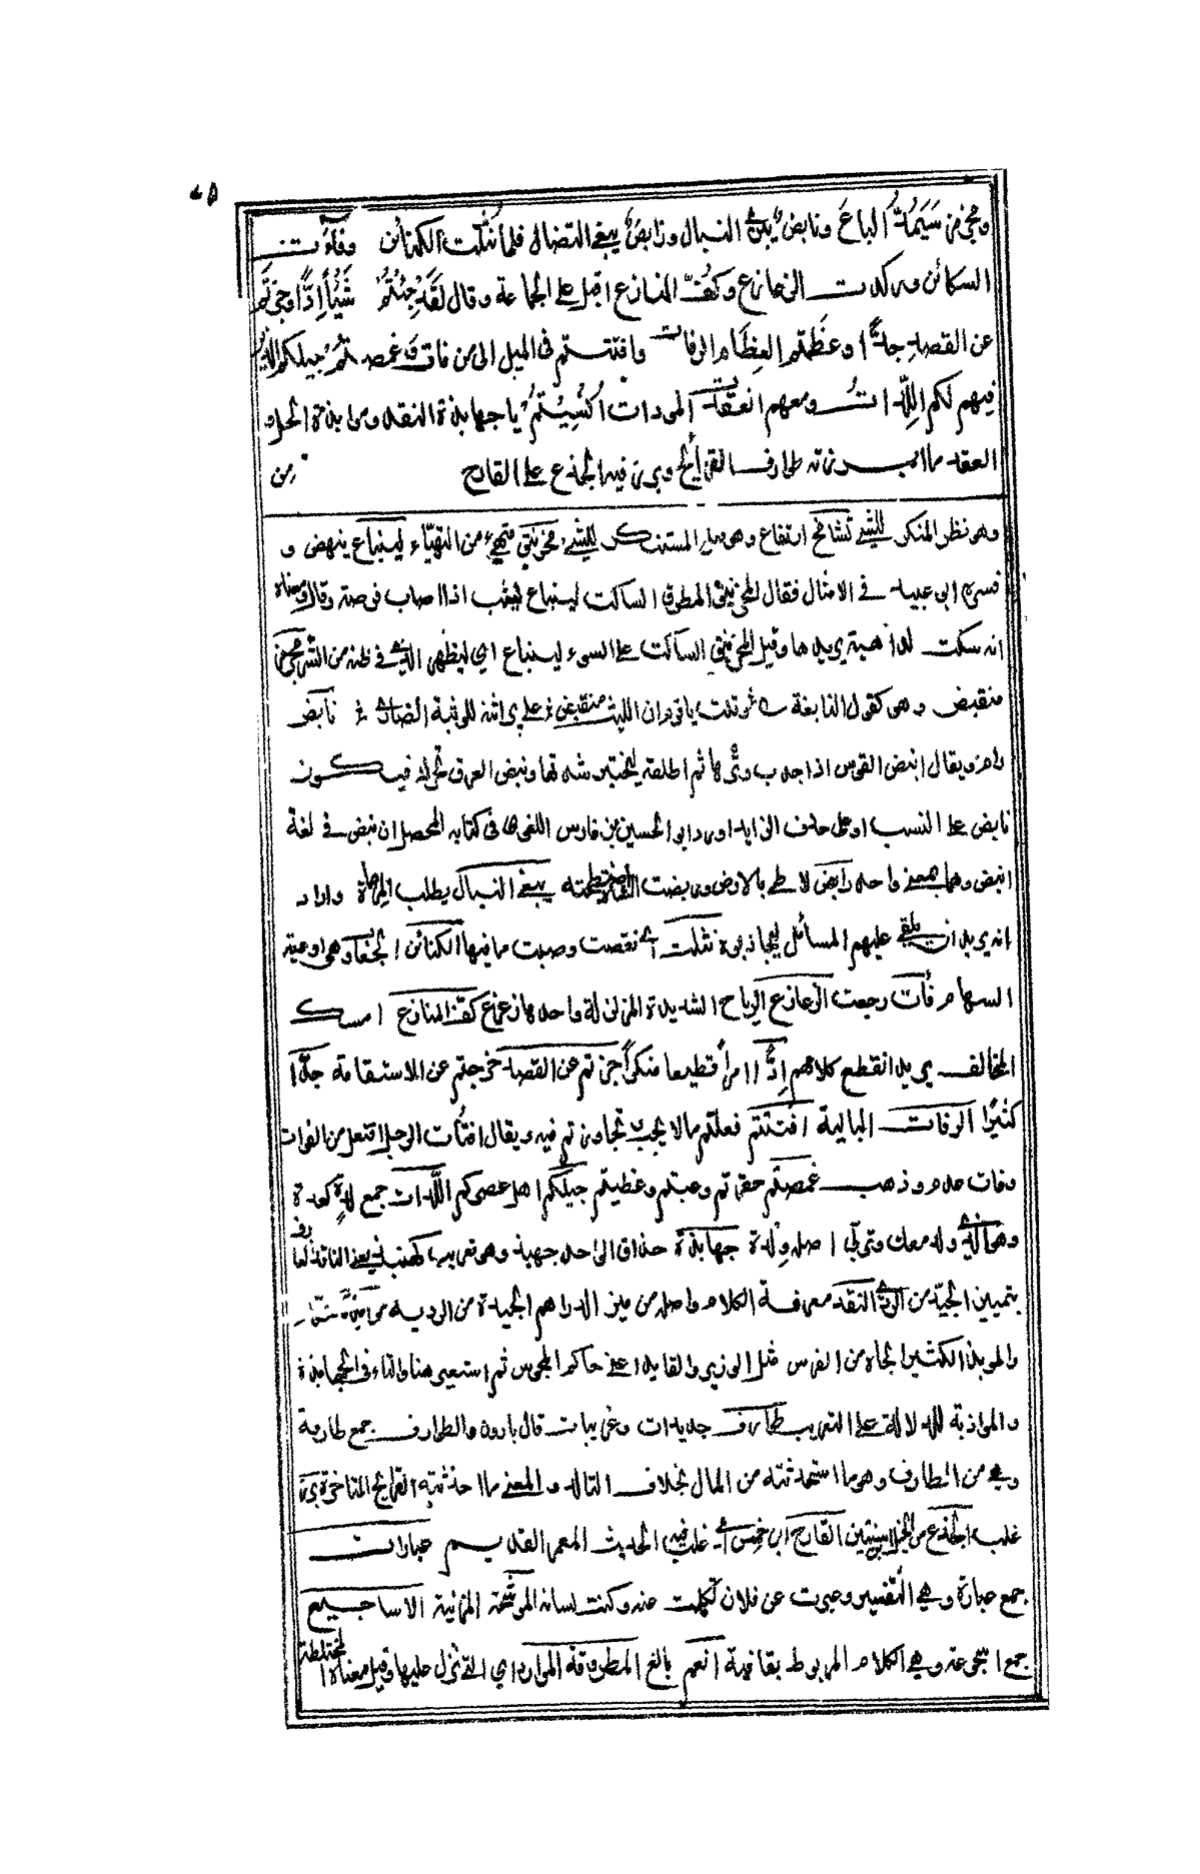 ومجرمز سَيَمُدُّ الباعَ ونابض يبري النبال ورابض يبغى النضال فلما نثلت الكنائن وفاءت
السكائن وركدت الزعازع وكف المنازع اقبل على الجماعة وقال لقد جِئْتُمْ شَيْأً إِدًّا وجرتم
عن القصد جدًّا وعظمتم العِظَام الرفات وافتتم في الميل الى من فات وغمصتم جيلكم الذين
فيهم لكم اللدات ومعهم انعقدت المودات أنسيتم يا جهابذة النقد وموابذة الحل و
العقد ما ابرزته طوارف القرائح وبرز فيه الجذع على القارح من
وهو نظر المنكر للشئ تشامخ ارتفاع وهو المستنكر للشئ مخرنبق متهيئ من التهيّاء لينباع ينهض و
فسره ابو عبيد في الامثال فقال المخرنبق المطرق الساكت لينباع ليثب اذا اصاب فرصته وقال ومعناه
انه سكت لداهية يريدها وقيل المخرنبق الساكت على السوء لينباع اي ليظهر الذي في ظنه من الشر مجرمز
منقبض وهو كقول النابغة وقلت يا قوم ان الليث منقبض على براثنه للوثبة الضاري نابض
رام ويقال انبض القوس اذا جذب وترها ثم اطلقه ليختبر شدتها ونبض العرق تحرك فيكون
نابض على النسب او على حذف الزايد اورد ابو الحسين بن فارس اللغوي في كتابه المحصل ان نبض في لغة
انبض وهما بمعنى واحد رابض لاطي بالارض وربضت الغنم يبغى النبال يطلب المراماة واراد
انه يريد ان يلقى عليهم المسائل ليجاذبوه نثلت اي نفضت وصبت ما فيها الكنائن الجعاب وهي اوعية
السهام فأت رجعت الزعازع الرياح الشديدة المزلزلة واحدها زعزع كف المنازع امسك
المخالف يريد انقطع كلامهم إدًّا امرا فظيعا منكرا جرتم عن القصد خرجتم عن الاستقامة جدّا
كثيرا الرفات البالية افتتم فعلتم ما لا يجب تجاوزتم فيه ويقال افتات الرجل افتعل من الفوات
وفات عدم وذهب غمصتم حقرتم وعبتم وغطيتم جيلكم اهل عصركم اللدات جمع لدة كعدة
وهو الذي ولد معك وتربي اصله ولدة جهابذة حذاق الواحد جهبذ وهو تعريب كهبذ يعني الناقد العارف
بتمييز الجيد من الردي النقد معرفة الكلام واصله من ميز الدراهم الجيدة من الردية موابذة
والموبذ الكثير الجاه من الفرس مثل الوزير والقايد اعني حاكم المجوس ثم استعير هنا والتاء في الجهابذة
والموابذة للدلالة على التعريب طوارف جديدات وغريبات قال بارون والطوارف جمع طارفة
وهي من الطارف وهو ما استحدثته من المال بخلاف التالد والمعنى ما احدثته القرائح المتاخرة برز
غلب الجذع من الخيل ابن سنتين القارح ابن خمس اي غلب فيه الحديث المعمر القديم عبارات
جمع عبارة وهي التفسير وعبرت عن فلان تكلمت عنه وكنت لسانه الموشحة المزينة الاساجيع
جمع اسجوعة وهي الكلام المربوط بقافية انعم بالغ المطروقة الموارد اي التي نزل عليها وقيل معناه المختلطة